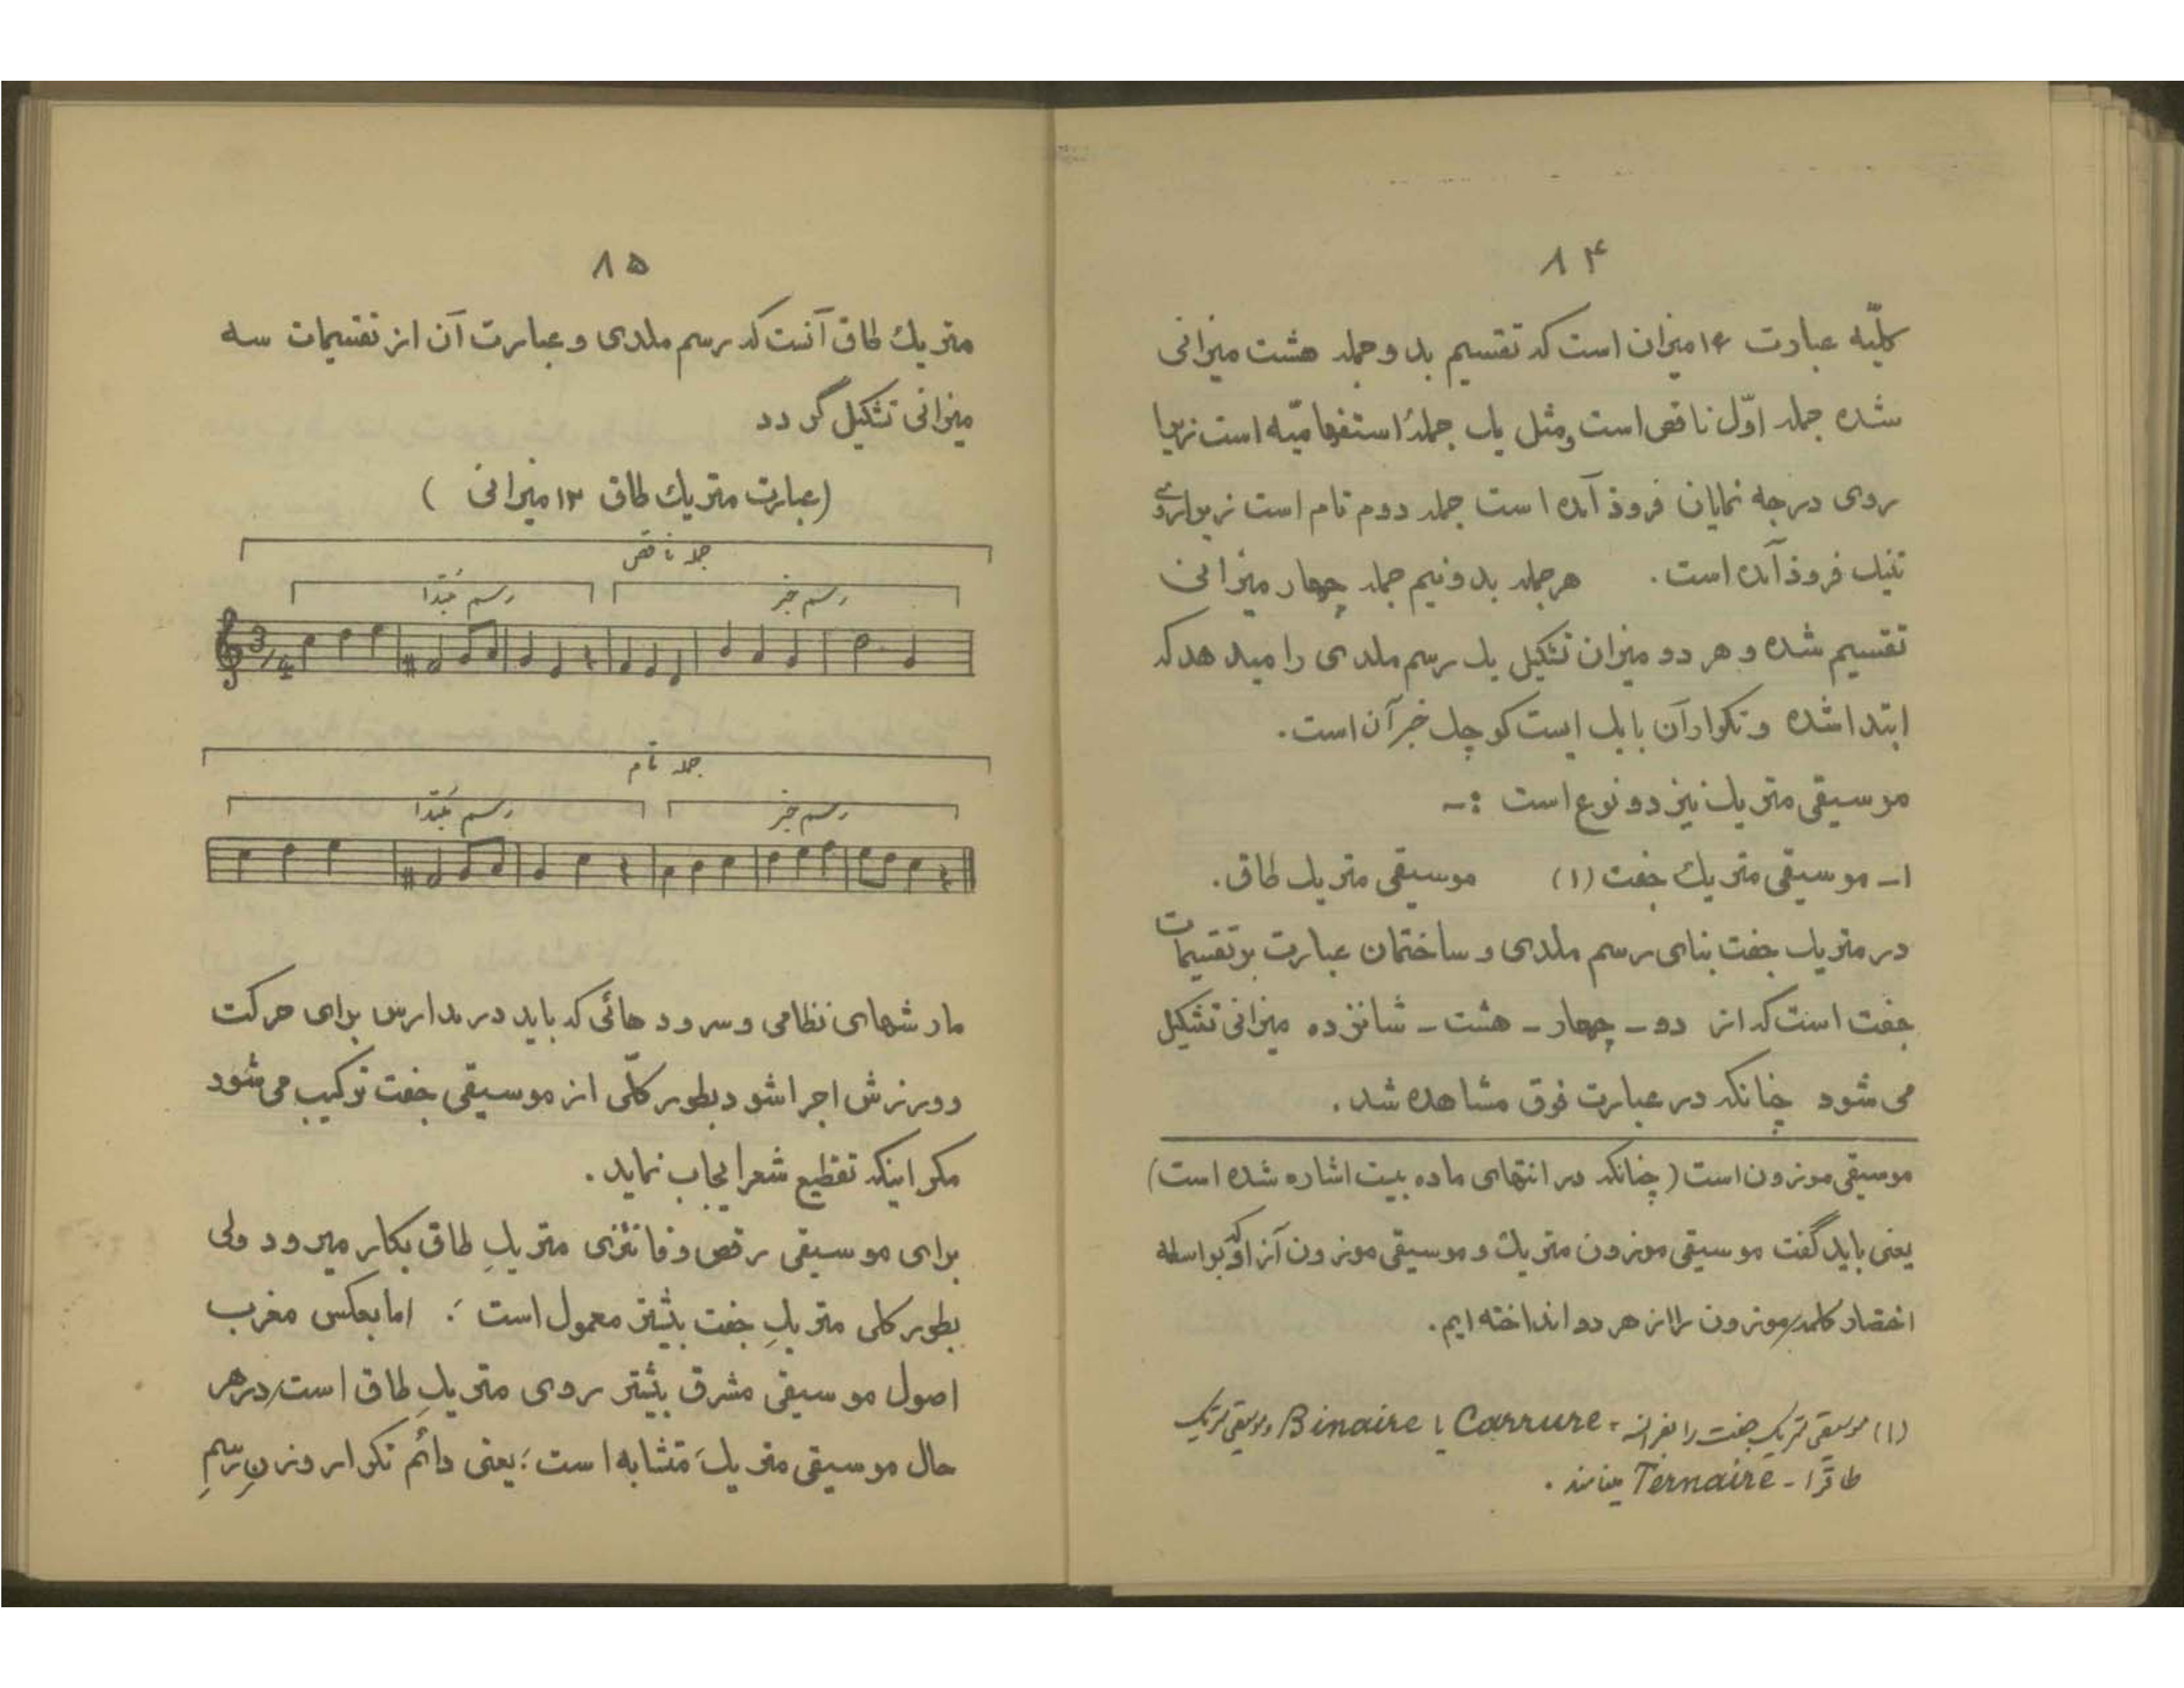 ۸۴
کلّیه عبارت ۱۶ میزان است که تقسیم بدو جمله هشت میزانی
شده جمله اوّل ناقص است و مثل یک جملهٔ استفهامیّه است زیرا
روی درجه نمایان فرود آمده است جمله دوم تام است زیرا روی
تنیک فرود آمده است. هر جمله بدو نیم جمله چهار میزانی
تقسیم شده و هر دو میزان تشکیل یک رسم ملدی را میدهد که
ابتدا شده و تکرار آن با یک ایست کوچک خبر آن است.
موسیقی متریک نیز دو نوع است :-
۱- موسیقی متریك جفت (۱) موسیقی متریك طاق.
در متریك جفت بنای رسم ملدی و ساختمان عبارت بر تقسیمات
جفت است که از دو - چهار - هشت - شانزده میزانی تشکیل
می شود چنانکه در عبارت فوق مشاهده شد.
موسیقی موزون است (چنانکه در انتهای ماده بیت اشاره شده است)
یعنی باید گفت موسیقی موزون متریك و موسیقی موزون آزاد که بواسطه
اختصار کلمه موزون را از هر دو انداخته ایم.
(۱) موسیقی متریک جفت را بفرانسه Carrure یا Binaire و موسیقی متریک
طاق را - Ternaire مینامند.
۸۵
متریك طاق آنست که رسم ملدی و عبارت آن از تقسیمات سه
میزانی تشکیل گردد
(عبارت متریك طاق ۱۲ میزانی)
جملهٔ ناقص
رسم مُبتدا رسم خبر
3/4
جملهٔ تام
رسم مُبتدا رسم خبر
مارشهای نظامی و سرود هائی که باید در مدارس برای حرکت
و ورزش اجرا شود بطور کلّی از موسیقی جفت ترکیب می شود
مگر اینکه تقطیع شعر ایجاب نماید.
برای موسیقی رقص و فانتزی متریكِ طاق بکار میرود ولی
بطور کلی متریكِ جفت بیشتر معمول است ؛ اما بعکس مغرب
اصول موسیقی مشرق بیشتر روی متریكِ طاق است در هر
حال موسیقی متریك متشابه است ؛ یعنی دائم تکرار وزنِ رسمِ